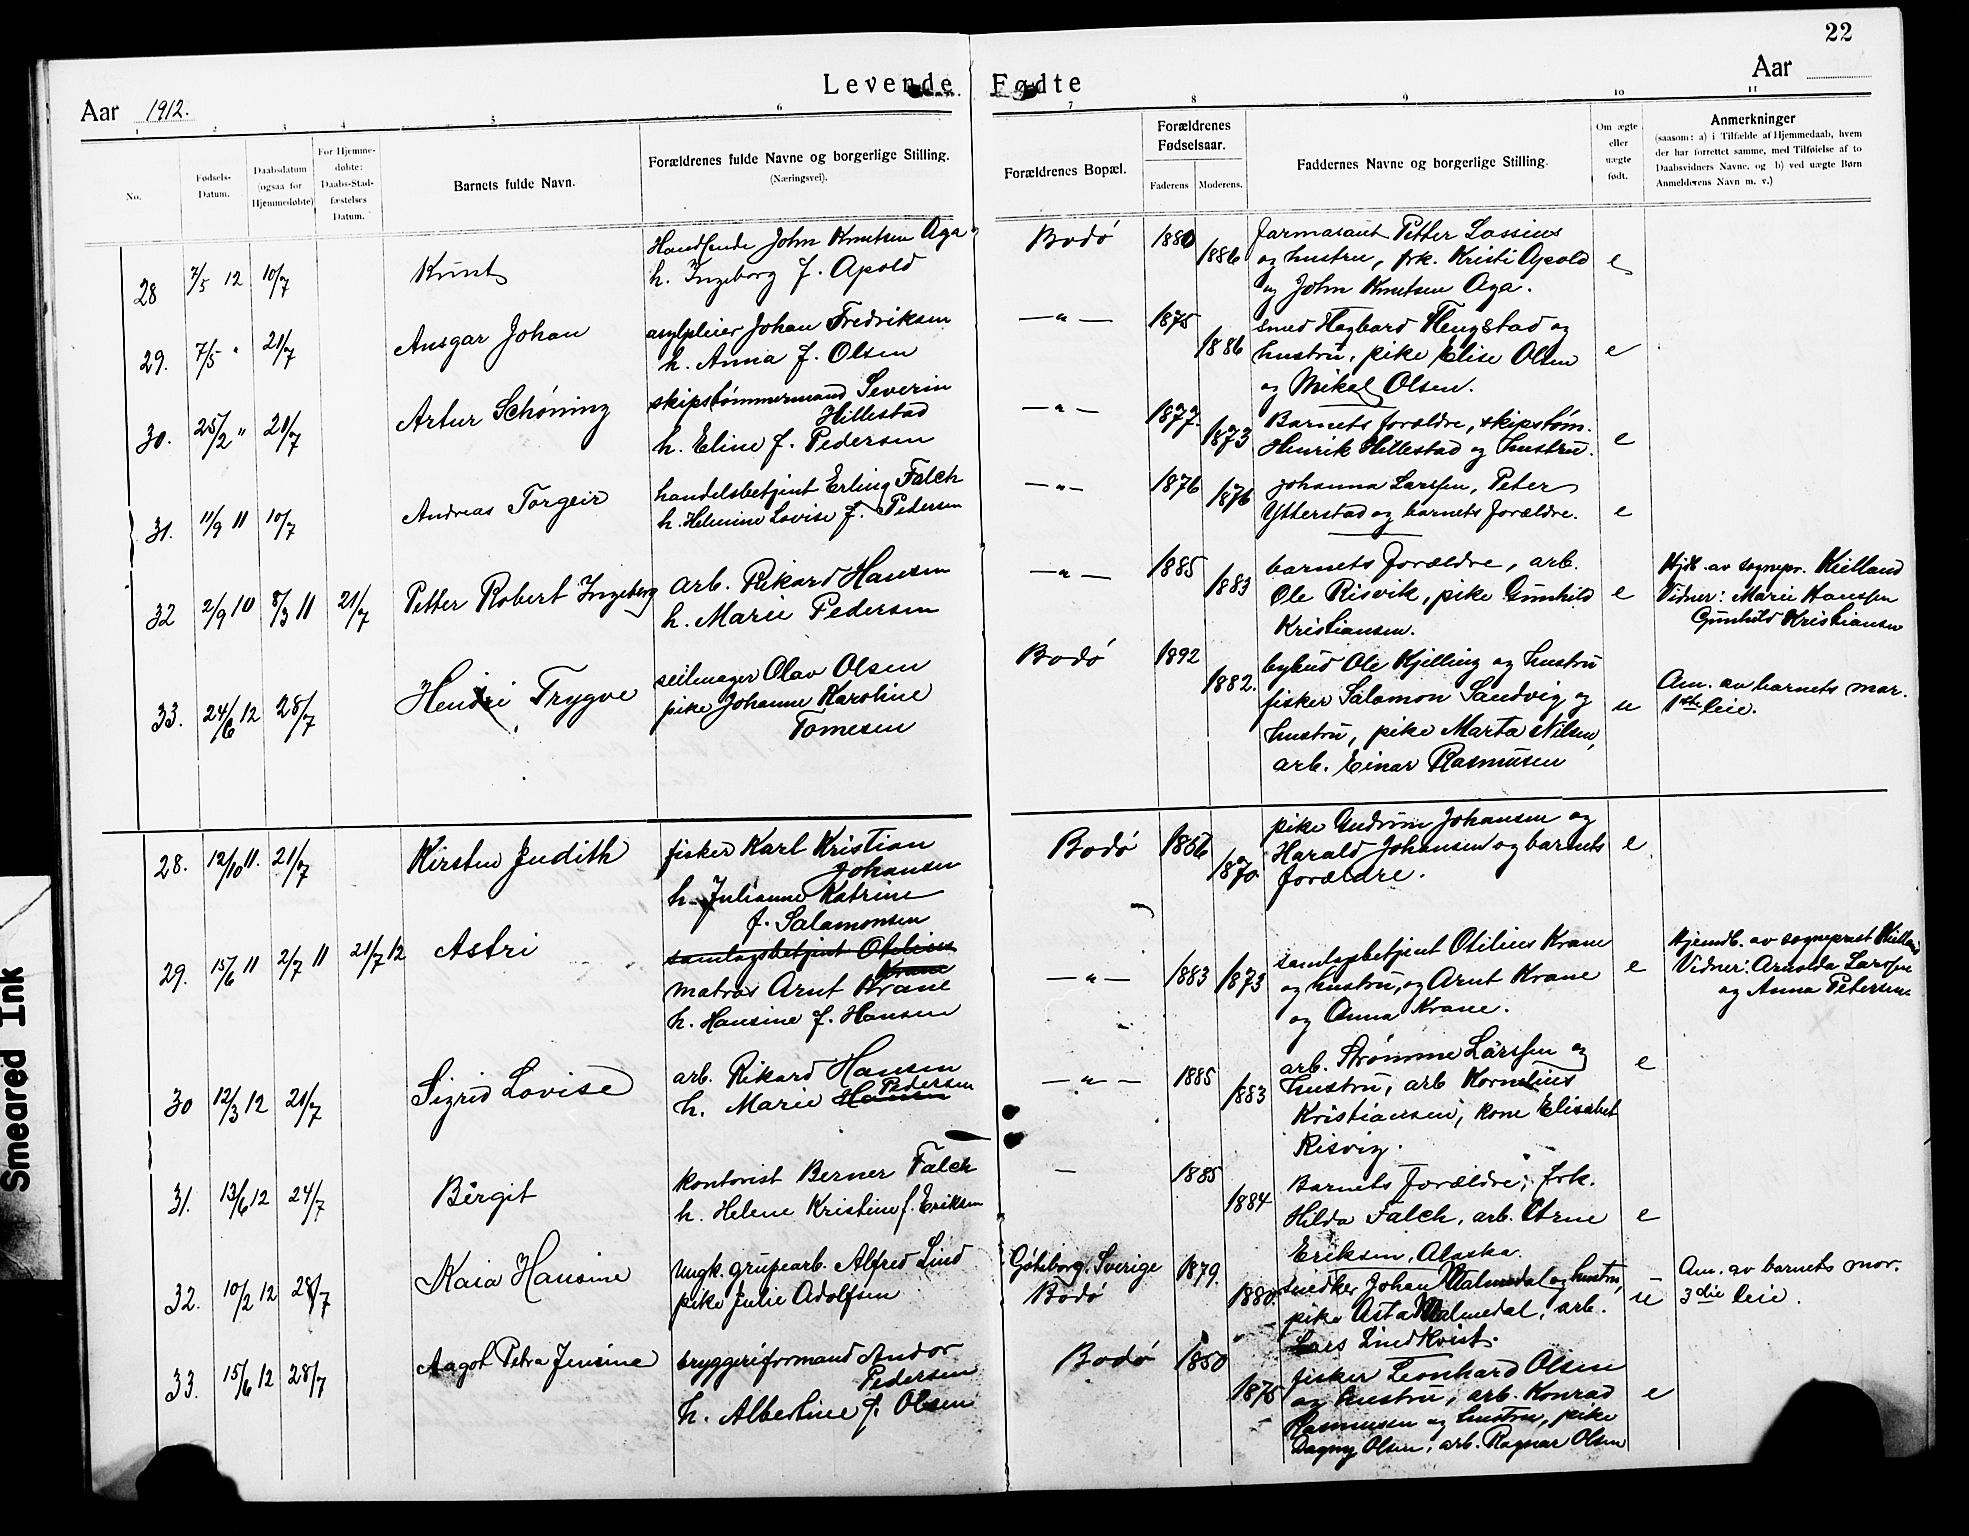 22
Levende Fødte
Aar 1912.
Aar
1 2 3 4 5 6 7 8 9 10 11
No.
Fødsels-
Datum.
Daabsdatum
(ogsaa for
Hjemmedøbte)
For Hjemme-
døbte:
Daabs-Stad-
fæstelses
Datum.
Barnets fulde Navn.
Forældrenes fulde Navne og borgerlige Stilling.
(Næringsvei).
Forældrenes Bopæl.
Forældrenes
Fødselsaar.
Faderens Moderens.
Faddernes Navne og borgerlige Stilling.
Om ægte
eller
uægte
født.
Anmerkninger
(saasom: a) i Tilfælde af Hjemmedaab, hvem
der har forrettet samme, med Tilføielse af to
Daabsvidners Navne, og b) ved uægte Børn
Anmelderens Navn m. v.)
28 7/5 12 10/7 Knut
Handlende John Knutsen Aga
h. Ingeborg f. Apold
Bodö 1880 1886
farmasaut Petter Lassius
og hustru, frk. Kristi Apold
og John Knutsen Aga.
e
29. 7/5 " 21/7 Ansgar Johan
asylpleier Johan Fredriksen
h. Anna f. Olsen
—"— 1875 1886
smed Hagbard Flengstad og
hustru, pike Elise Olsen
og Mikal Olsen.
e
30. 25/2 " 21/7 Artur Schöning
skipstömmermand Severin
Hillestad
h. Eline f. Pedersen
—"— 1877. 1873
Barnets forældre, skipstöm.
Henrik Hillestad og hustru.
e
31. 11/9 11 10/7 Andreas Torgeir
handelsbetjent Erling Falch
h. Helmine Lovise f. Pedersen
—"— 1876 1876
Johanna Larssen, Peter
Ytterstad og barnets forældre.
e
32 2/9 10 8/3 11 21/7 Petter Robert Ingeberg
arb. Rikard Hansen
h. Marie Pedersen
—"— 1885 1883
barnets forældre, arb.
Ole Risvik, pike Gunhild
Kristiansen.
e
Hjdt. av sognepr. Kielland
Vidner: Marie Hanssen
Gunhild Kristiansen
33. 24/6 12 28/7 Hendri Trygve
seilmager Olav Olsen
pike Johanne Karoline
Tomesen
Bodö 1892 1882.
bybud Ole Kjelling og hustru
fisker Salamon Sandvig og
hustru, pike Marta Nilsen,
arb. Einar Rasmusen
u
Am. av barnets mor.
1ste leie.
28. 12/10 11. 21/7 Kirsten Judith
fisker Karl Kristian
Johansen
h. Julianne Katrine
f. Salamonsen
Bodö 1866 1870
pike Gudrun Johansen og
Harald Johansen og barnets
forældre.
e
29. 15/6 11 2/7 11 21/7 12 Astri
samlagsbetjent Otilius
Krane
matros Arnt Krane
h. Hansine f. Hansen
—"— 1883 1873
samlagsbetjent Otilius Krane
og hustru, og Arnt Krane
og Anna Krane.
e
Hjemdt. av sogneprest Kielland
Vidner: Arnolda Larssen
og Anna Petersen
30 12/3 12 21/7 Sigrid Lovise
arb. Rikard Hansen
h. Marie Hansen Pedersen
—"— 1885 1883
arb. Strömme Larssen og
hustru, arb Kornelius
Kristiansen, kone Elisabet
Risvig.
e
31. 13/6 12 24/7 Birgit
kontorist Berner Falch
h. Helene Kristine f. Eriksen
— 1885 1884
Barnets forældre, frk.
Hilda Falch, arb. Arne
Eriksen, Alaska.
e
32. 10/2 12 28/7 Kaia Hansine
Ungk. grupearb. Alfred Lind
pike Julie Adolfsen
Göteborg, Sverige
Bodö 1879. 1880.
snedker Johan Malmedal og hustru,
pike Asta Malmedal, arb.
Lars Lindkvist.
u
Am. av barnets mor.
3die leie.
33. 15/6 12 28/7 Aagot Petra Jensine
bryggeriformand Andor
Pedersen
h. Albertine f. Olsen
Bodö 1850 1875
fisker Leonhard Olsen
og hustru, arb. Konrad
Rasmusen og hustru, pike
Dagny Olsen, arb. Ragnar Olsen
e
Smeared Ink